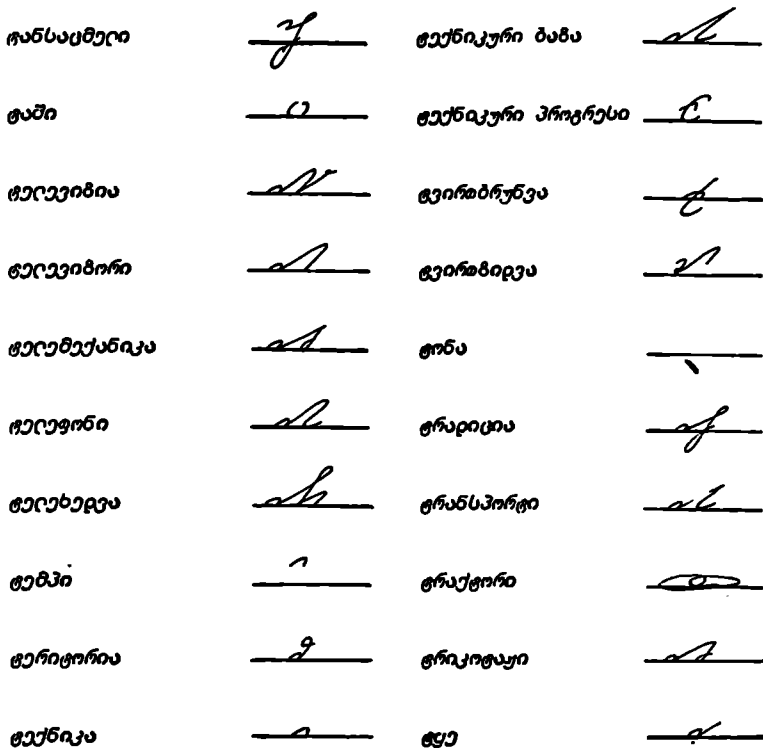 ტანსაცმელი
ტაში
ტელევიზია
ტელევიზორი
ტელემექანიკა
ტელეფონი
ტელეხედვა
ტემპი
ტერიტორია
ტექნიკა
ტექნიკური ბაზა
ტექნიკური პროგრესი
ტვირთბრუნვა
ტვირთზიდვა
ტონა
ტრადიცია
ტრანსპორტი
ტრაქტორი
ტრიკოტაჟი
ტყე